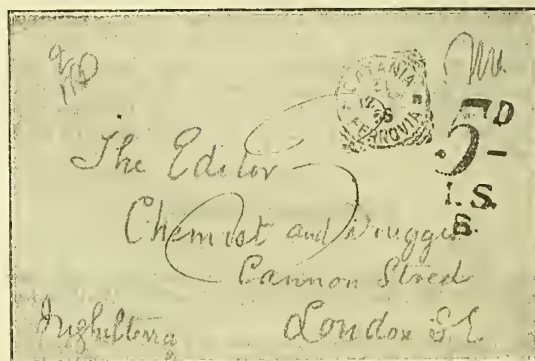 CATANIA
FERROVIA
5D
I.S.
B.
The Editor
Chemist and Druggist
Cannon Street
London S.E.
Inghilterra